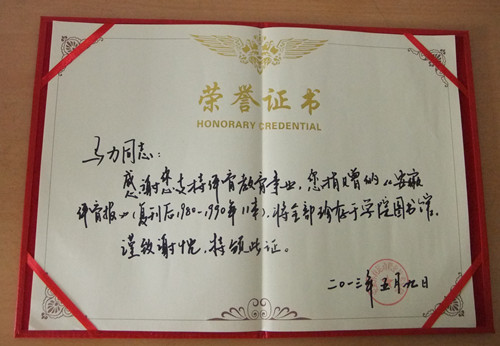 荣誉证书
HONORARY CREDENTIAL
马力同志:
感谢您支持体育教育事业,您捐赠的《安徽
体育报》(复刊后,1980-1990年11本),将全部珍存于学院图书馆。
谨致谢忱,特颁此证。
二〇一三年五月九日